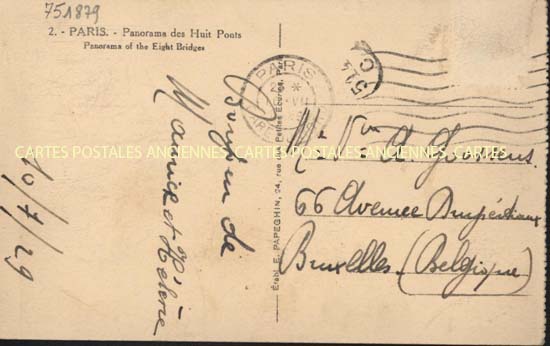 751879
2. - PARIS. - Panorama des Huit Ponts
Panorama of the Eight Bridges
PARIS
514
Établ. E. PAPEGHIN, 24, rue des Petites Écuries, Paris
10/7/29
Bonjour de
Maurice et Hélène
66 Avenue
Bruxelles (Belgique)
CARTES POSTALES ANCIENNES CARTES POSTALES ANCIENNES CARTES